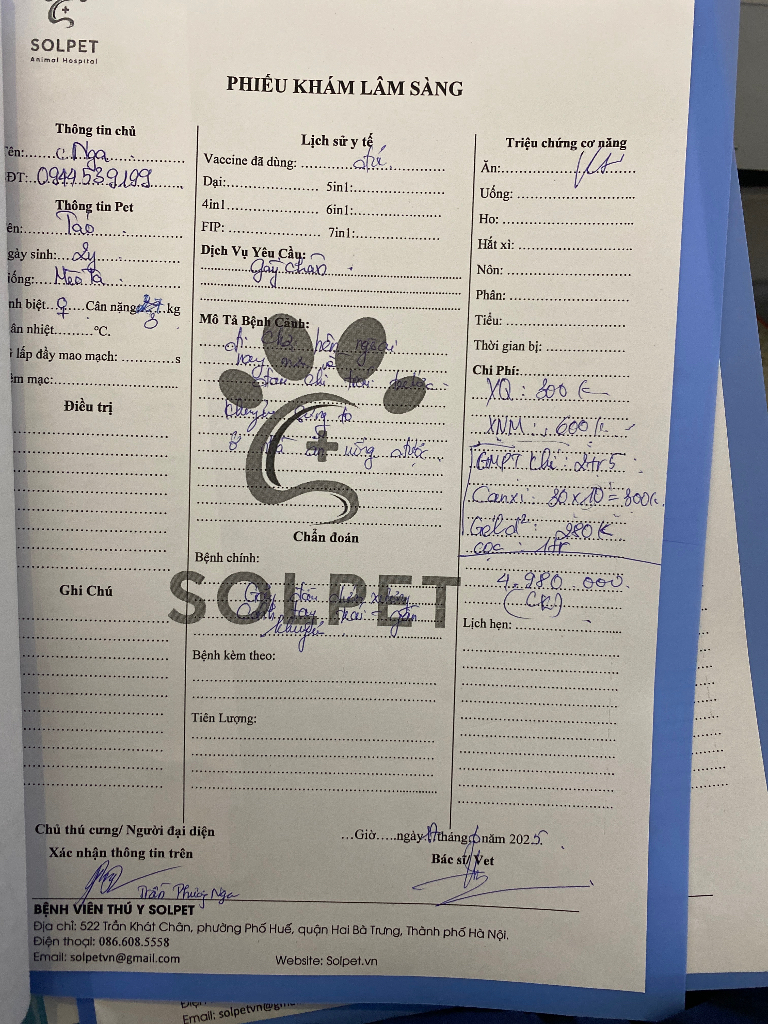 SOLPET
Animal Hospital
PHIẾU KHÁM LÂM SÀNG
Thông tin chủ
ên: C. Nga
ĐT: 0944539199
Thông tin Pet
ên: Táo
gày sinh: 2y
iống: Mèo ta
nh biệt ♀ Cân nặng kg
ân nhiệt.........°C.
i lấp đầy mao mạch: ............. s
êm mạc:
Điều trị
Ghi Chú
Lịch sử y tế
Vaccine đã dùng:
Dại: 5in1:
4in1 6in1:
FIP: 7in1:
Dịch Vụ Yêu Cầu:
Gãy chân
Mô Tả Bệnh Cảnh:
hôm
to
ăn uống được
SOLPET
Chẩn đoán
Bệnh chính:
Gãy đầu xương
tay trái gần
khuỷu
Bệnh kèm theo:
Tiên Lượng:
Triệu chứng cơ năng
Ăn:
Uống:
Ho:
Hắt xì:
Nôn:
Phân:
Tiểu:
Thời gian bị:
Chi Phí:
XQ: 300 K
XNM: 600 K
GMPT khí: 2tr5
Canxi: 30 x 10 = 300K
280K
cọc: 1tr
4.980 000
(CK)
Lịch hẹn:
Chủ thú cưng/ Người đại diện
Xác nhận thông tin trên
Trần Phương Nga
…Giờ…..ngày 17 tháng 6 năm 2025.
Bác sĩ/ Vet
BỆNH VIÊN THÚ Y SOLPET
Địa chỉ: 522 Trần Khát Chân, phường Phố Huế, quận Hai Bà Trưng, Thành phố Hà Nội.
Điện thoại: 086.608.5558
Email: solpetvn@gmail.com Website: Solpet.vn
Email: solpetvn@g